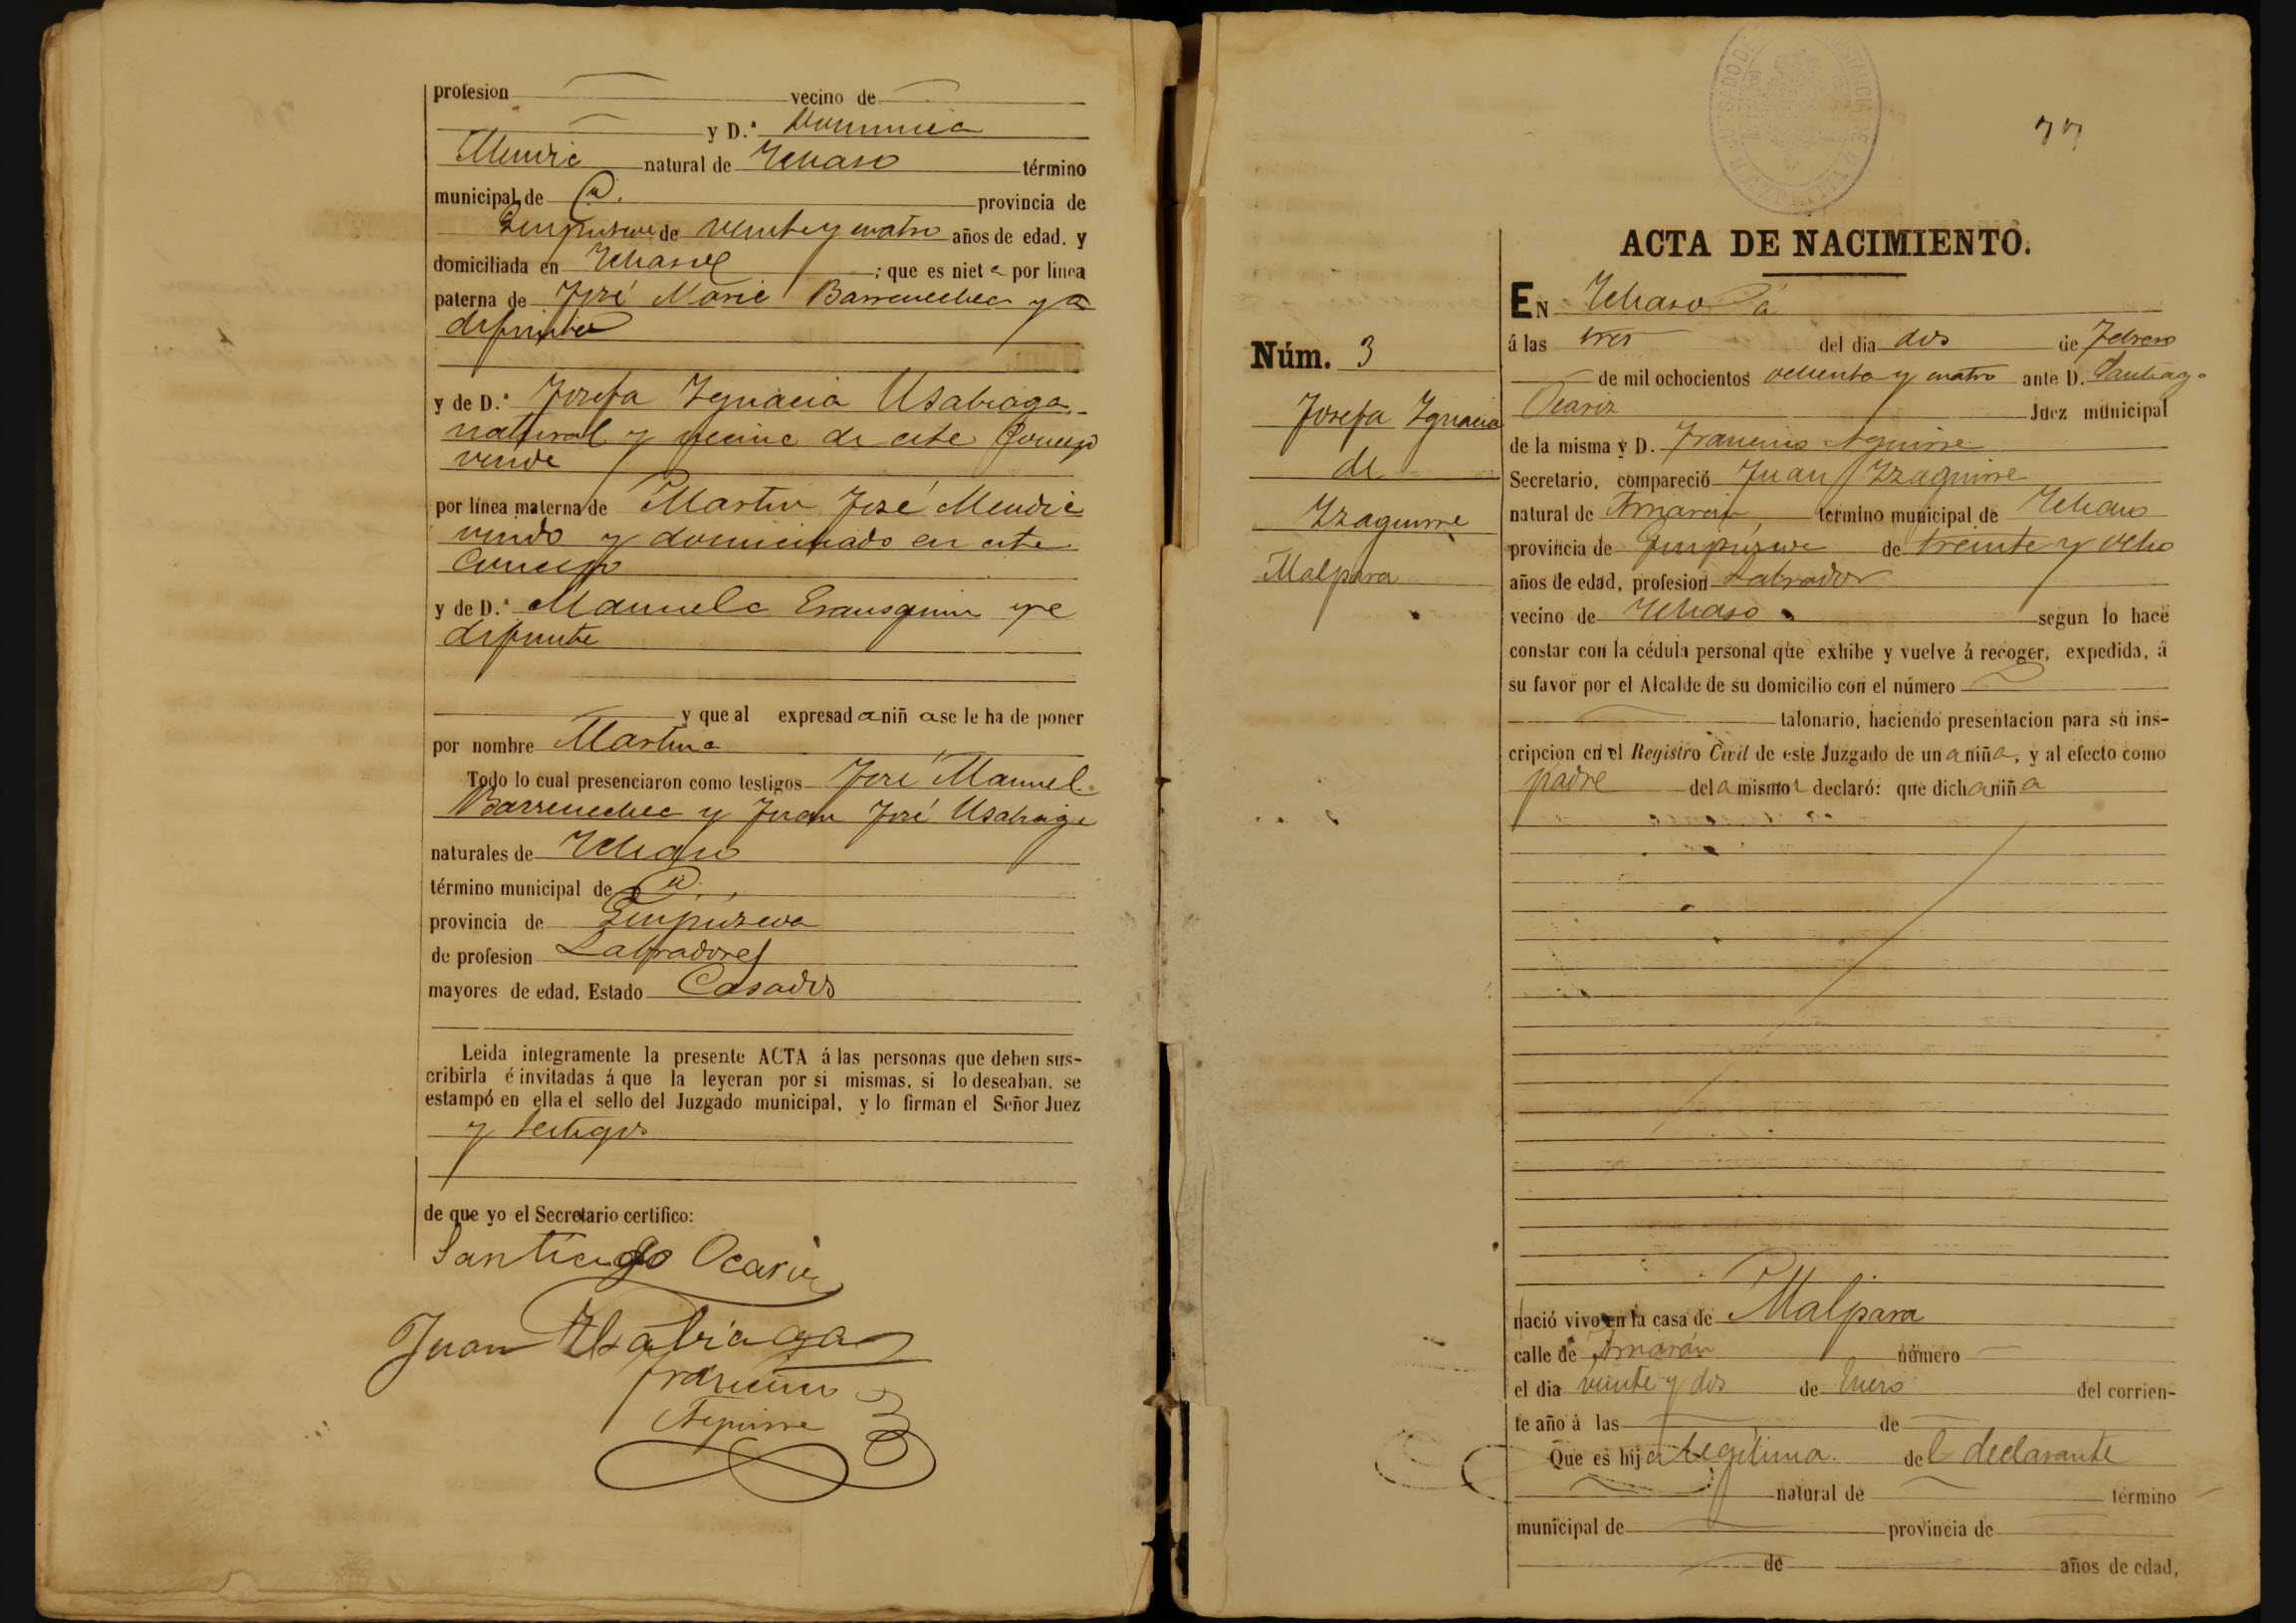 profesion vecino de
y D.ª Dominica
Mendia natural de Ichaso término
municipal de id. provincia de
Guipúzcoa de veinte y cuatro años de edad, y
domiciliada en Ichaso ; que es niet a por linea
paterna de José Maria Barrenechea ya
difunto
y de D.ª Josefa Ygnacia Usabiaga
natural y vecina de este Concejo
viuda
por línea materna de Martin José Mendia
viudo y domiciliado en este
Concejo
y de D.ª Manuela Erausquin ya
difunta
y que al expresad a niñ a se le ha de poner
por nombre Martina
Todo lo cual presenciaron como testigos José Manuel
Barrenechea y Juan José Usabiaga
naturales de Ichaso
término municipal de id.
provincia de Guipúzcoa
de profesion Labradores
mayores de edad, Estado Casados
Leida integramente la presente ACTA á las personas que deben sus-
cribirla é invitadas á que la leyeran por si mismas, si lo deseaban, se
estampó en ella el sello del Juzgado municipal, y lo firman el Señor Juez
y testigos
de que yo el Secretario certifico:
Santiago Ocariz
Juan Usabiaga
Francisco
Aguirre
77
ACTA DE NACIMIENTO.
Núm. 3
Josefa Ygnacia
de
Yzaguirre
Malpara
EN Ichaso á
á las tres del dia dos de Febrero
de mil ochocientos ochenta y cuatro ante D. Santiago
Ocariz Juez municipal
de la misma y D. Francisco Aguirre
Secretario, compareció Juan Yzaguirre
natural de Arriarán término municipal de Ichaso
provincia de Guipúzcoa de treinta y ocho
años de edad, profesion Labrador
vecino de Ichaso segun lo hace
constar con la cédula personal que exhibe y vuelve á recoger, expedida, á
su favor por el Alcalde de su domicilio con el número
talonario, haciendo presentacion para su ins-
cripcion en el Registro Civil de este Juzgado de un a niña, y al efecto como
padre del a misma declaró: que dich a niñ a
nació vivo en la casa de Malpara
calle de Arriarán número
el dia veinte y dos de Enero del corrien-
te año á las de
Que es hij a legítima del declarante
natural de término
municipal de provincia de
de años de edad,